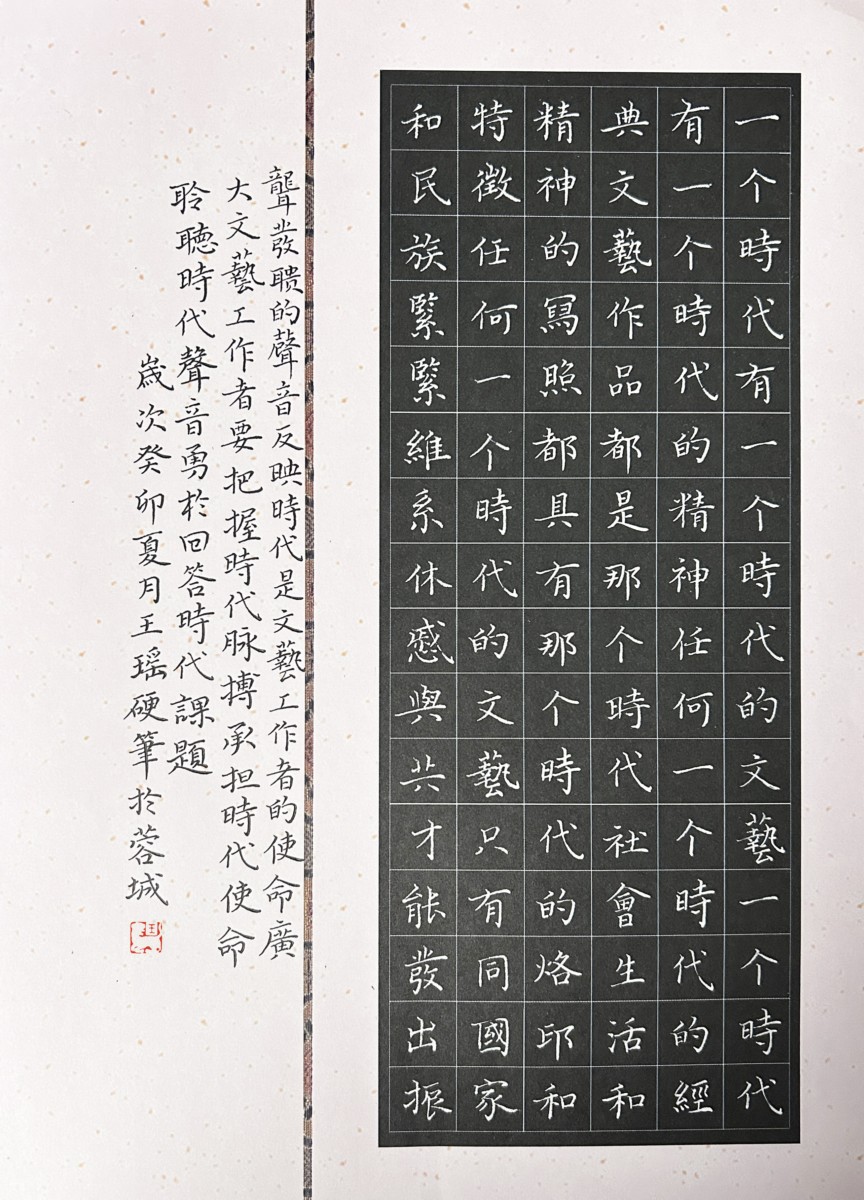 一个時代有一个時代的文藝一个時代
有一个時代的精神任何一个時代的經
典文藝作品都是那个時代社會生活和
精神的寫照都具有那个時代的烙印和
特徵任何一个時代的文藝只有同國家
和民族緊緊維系休慼與共才能發出振
聾發聵的聲音反映時代是文藝工作者的使命廣
大文藝工作者要把握時代脉搏承担時代使命
聆聽時代聲音勇於回答時代課題
歲次癸卯夏月王瑶硬筆於蓉城